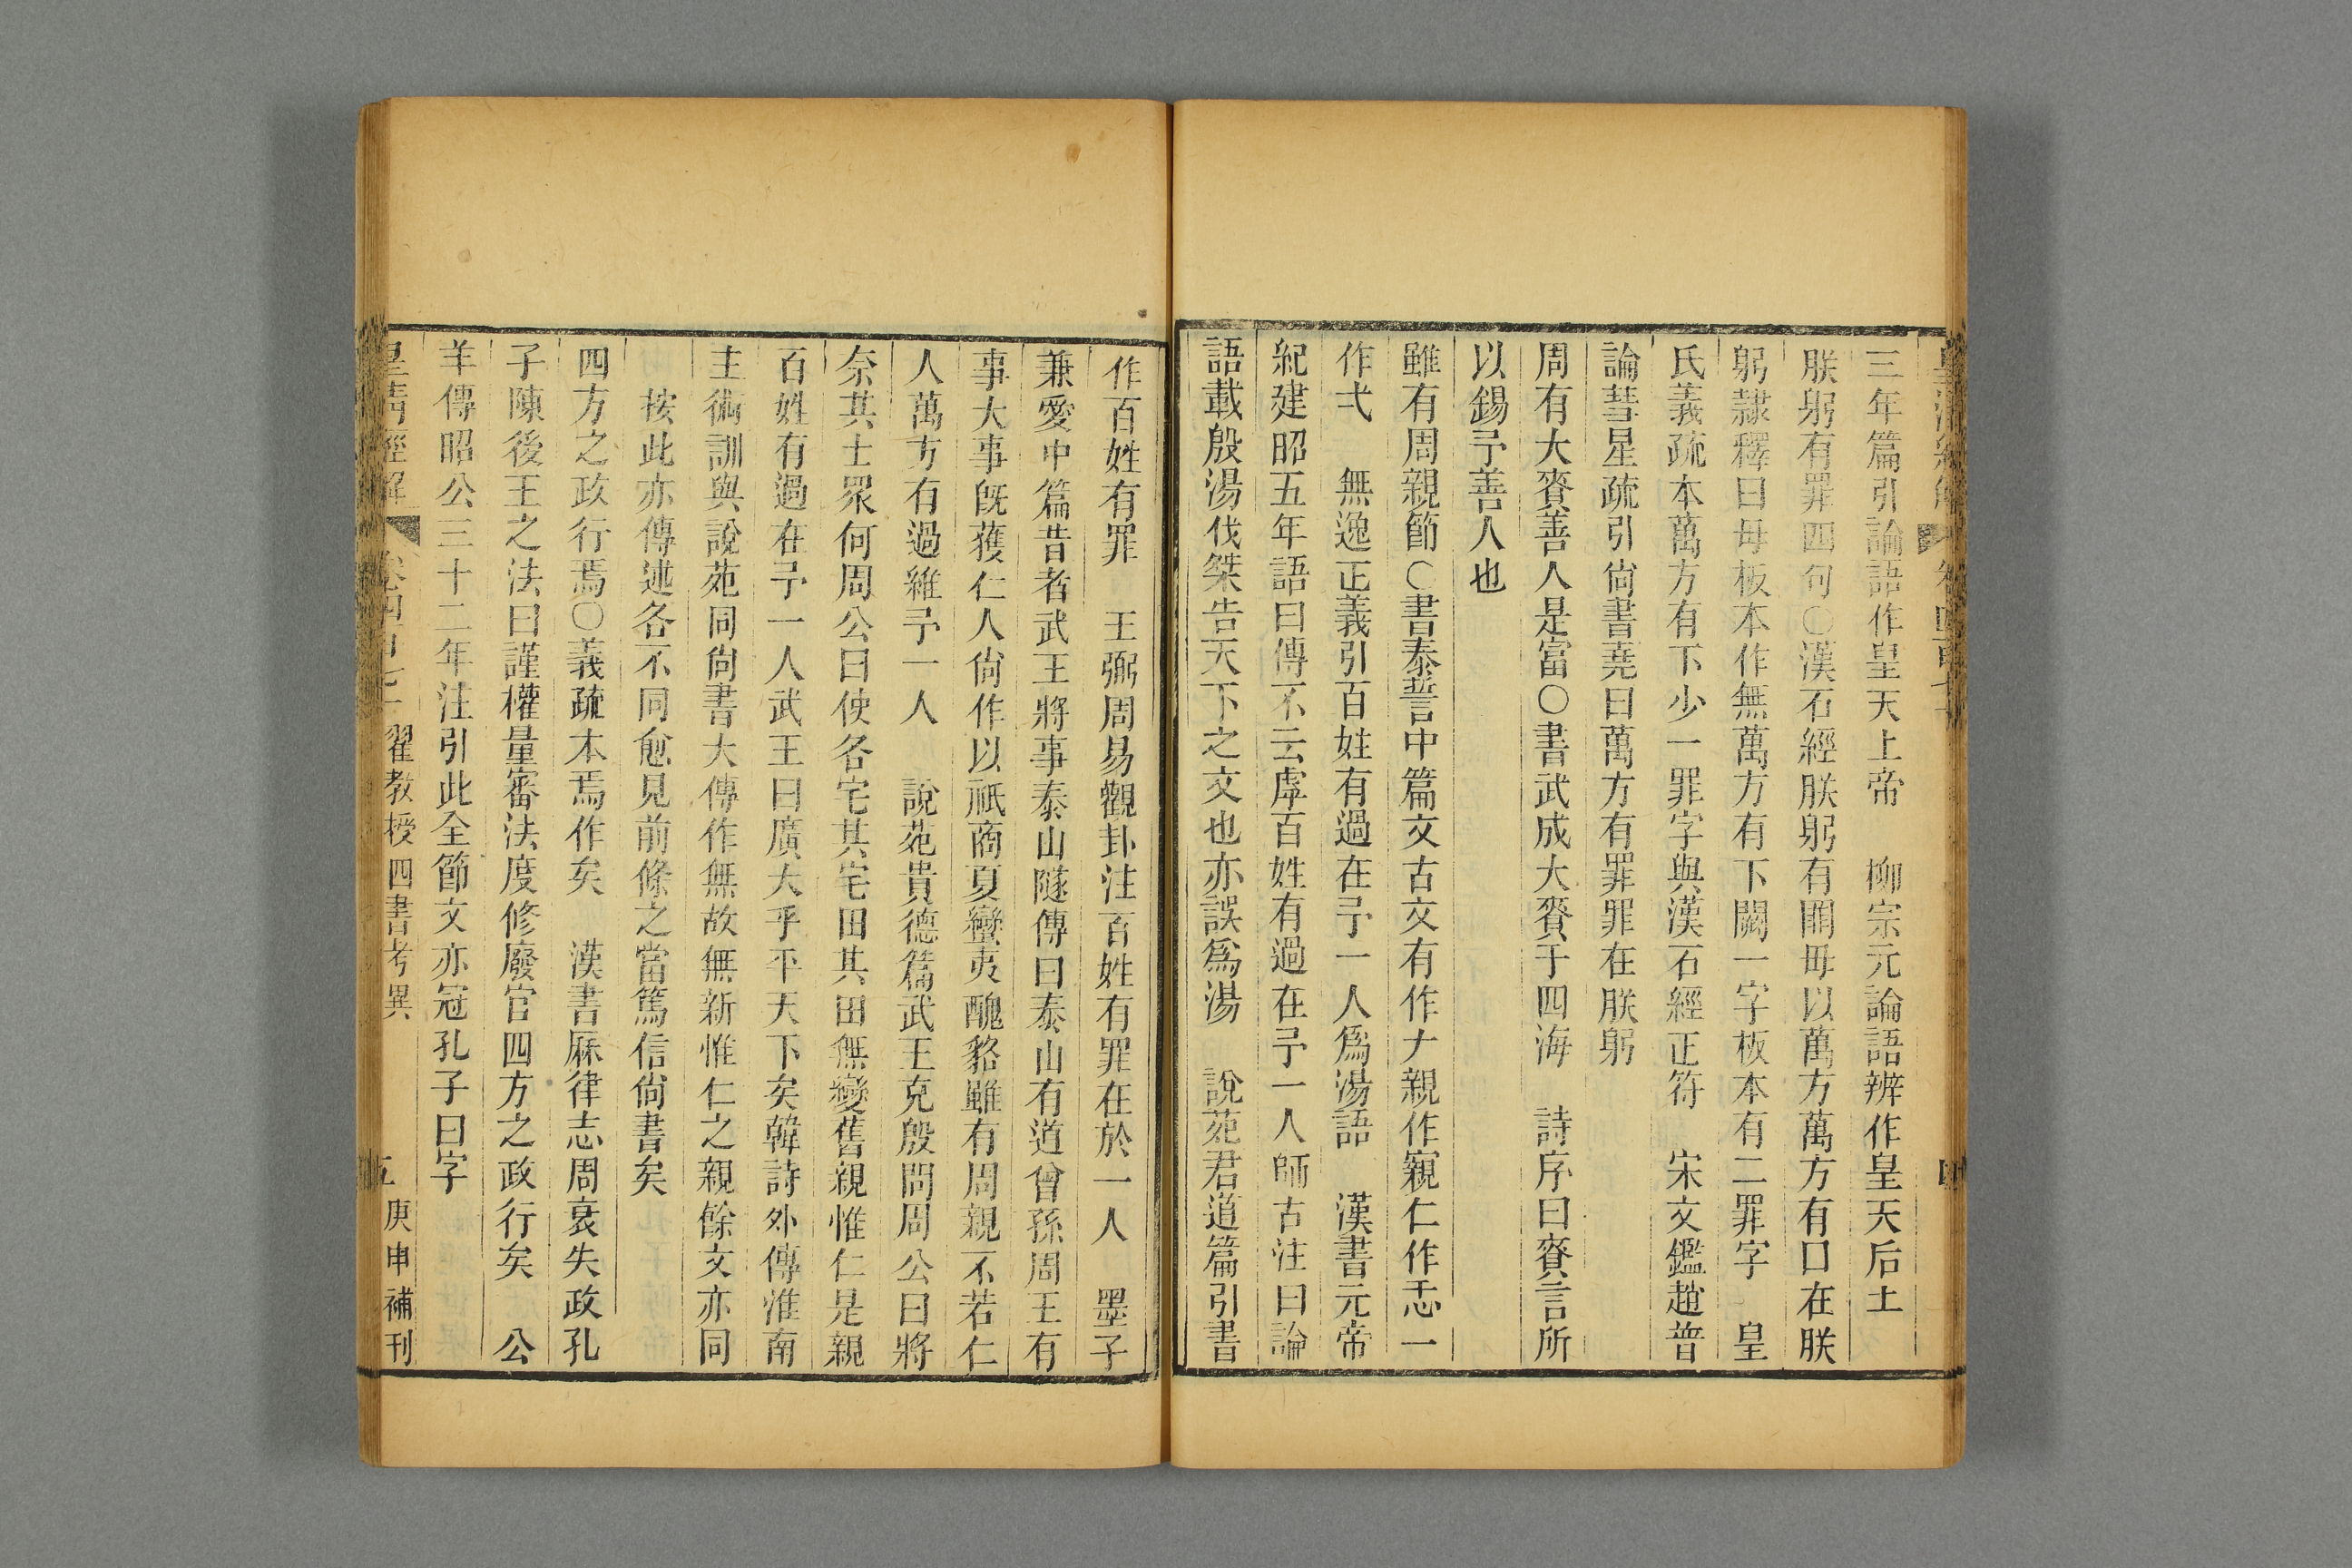 三年篇引論語作皇天上帝　柳宗元論語辨作皇天后土
朕躬有罪四句○漢石經朕躬有罪毋以萬方萬方有口在朕
躬隸釋曰毋板本作無萬方有下闕一字板本有二罪字　皇
氏義疏本萬方有下少一罪字與漢石經正符　宋文鑑趙普
論彗星疏引尙書堯曰萬方有罪罪在朕躬
周有大賚善人是富○書武成大賚于四海　詩序曰賚言所
以錫予善人也
雖有周親節○書泰誓中篇文古文有作ナ親作寴仁作忎一
作弌　無逸正義引百姓有過在予一人爲湯語　漢書元帝
紀建昭五年語曰傳不云虖百姓有過在予一人師古注曰論
語載殷湯伐桀告天下之文也亦誤爲湯　說苑君道篇引書
作百姓有罪　王弼周易觀卦注百姓有罪在於一人　墨子
兼愛中篇昔者武王將事泰山隧傳曰泰山有道曾孫周王有
事大事旣獲仁人尙作以祇商夏蠻夷醜貉雖有周親不若仁
人萬方有過維予一人　說苑貴德篇武王克殷問周公曰將
奈其士眾何周公曰使各宅其宅田其田無變舊親惟仁是親
百姓有過在予一人武王曰廣大乎平天下矣韓詩外傳淮南
主術訓與說苑同尙書大傳作無故無新惟仁之親餘文亦同
按此亦傳述各不同愈見前條之當篤信尙書矣
四方之政行焉○義疏本焉作矣　漢書厤律志周衰失政孔
子陳後王之法曰謹權量審法度修廢官四方之政行矣　公
羊傳昭公三十二年注引此全節文亦冠孔子曰字
皇淸經解　卷四百七十　翟教授四書考異　五　庚申補刊